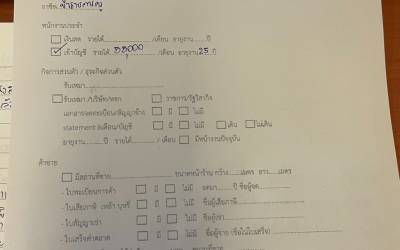 อาชีพ ข้าราชการครู
พนักงานประจำ
เงินสด รายได้ /เดือน อายุงาน ปี
เข้าบัญชี รายได้ ๓๓,๐๐๐ /เดือน อายุงาน 25 ปี
กิจการส่วนตัว / ธุรกิจส่วนตัว
รับเหมา
รับเหมา /บริษัท/หจก ราชการ/รัฐวิสาหกิจ
เอกสารจดทะเบียน/สัญญาจ้าง มี ไม่มี
statement ส่งเดือน/บัญชี มี ไม่มี เดิน ไม่เดิน
อายุงาน ปี รายได้ / เดือน มีหน้างานปัจจุบัน
ค้าขาย
มีสถานที่ขาย ขนาดหน้าร้าน กว้าง เมตร ยาว เมตร
- ใบทะเบียนการค้า มี ไม่มี จดมา ปี ชื่อผู้จด
- ใบเสียภาษี เหล้า บุหรี่ มี ไม่มี ชื่อผู้เสียภาษี
- ใบสัญญาเช่า มี ไม่มี ชื่อผู้เช่า
- ใบเสร็จค่าตลาด มี ไม่มี ชื่อผู้จ่าย (ชื่อในใบเสร็จ)